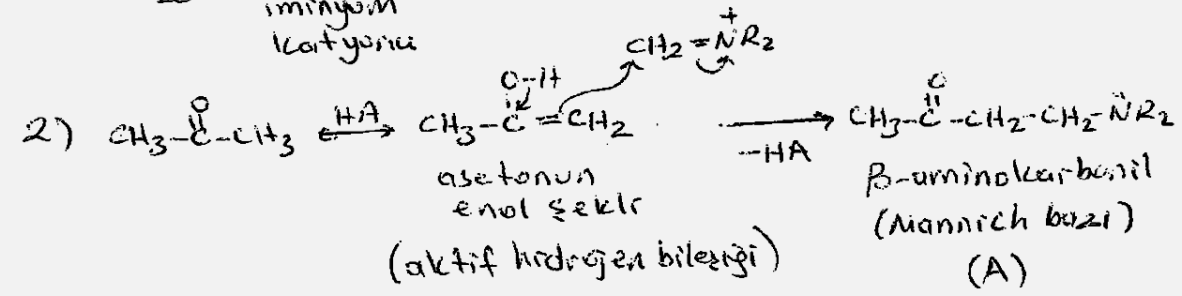 iminyum
katyonu
CH2=N+R2
O-H
2) CH3-C(=O)-CH3 ⟷ HA CH3-C=CH2 ⟶ -HA CH3-C(=O)-CH2-CH2-N̈R2
asetonun
enol şekli
(aktif hidrojen bileşiği)
β-aminokarbonil
(Mannich bazı)
(A)